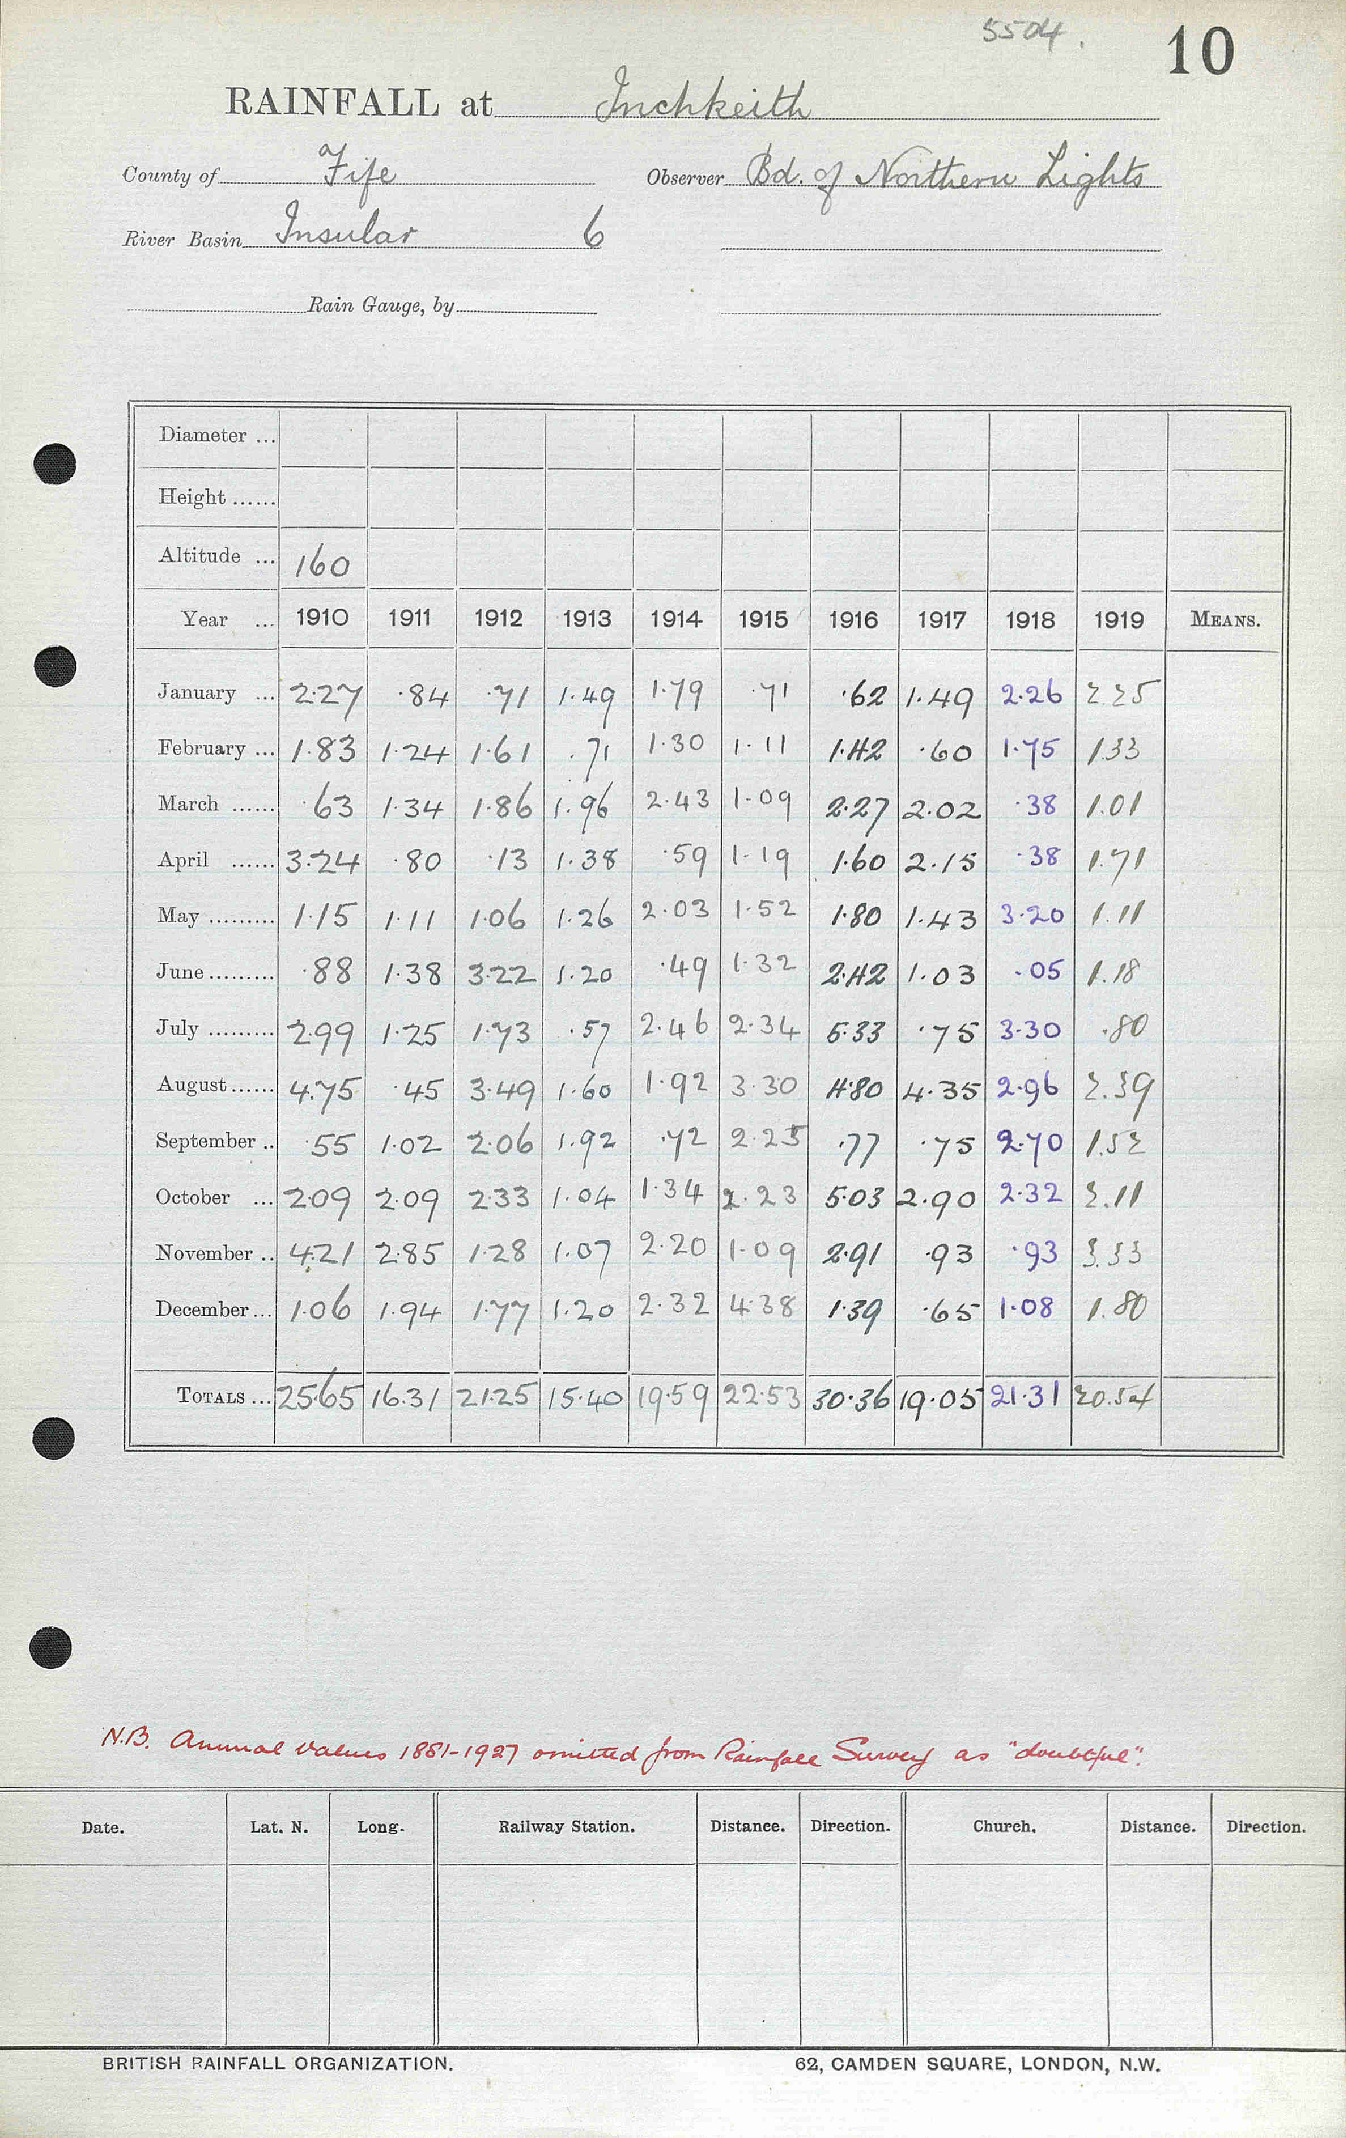 5504.
10
RAINFALL at Inchkeith
County of Fife Observer Bd. of Northern Lights
River Basin Insular 6
Rain Gauge, by
Diameter ...
Height ......
Altitude ... 160
Year ... 1910 1911 1912 1913 1914 1915 1916 1917 1918 1919 MEANS.
January ... 2.27 .84 .71 1.49 1.79 .71 .62 1.49 2.26 2.25
February ... 1.83 1.24 1.61 .71 1.30 1.11 1.42 .60 1.75 1.33
March ...... .63 1.34 1.86 1.96 2.43 1.09 2.27 2.02 .38 1.01
April ...... 3.24 .80 .13 1.38 .59 1.19 1.60 2.15 .38 1.71
May ......... 1.15 1.11 1.06 1.26 2.03 1.52 1.80 1.43 3.20 1.11
June ......... .88 1.38 3.22 1.20 .49 1.32 2.42 1.03 .05 1.18
July ......... 2.99 1.25 1.73 .57 2.46 2.34 5.33 .75 3.30 .80
August ...... 4.75 .45 3.49 1.60 1.92 3.30 4.80 4.35 2.96 2.39
September .. .55 1.02 2.06 1.92 .72 2.25 .77 .75 2.70 1.52
October ... 2.09 2.09 2.33 1.04 1.34 2.23 5.03 2.90 2.32 2.11
November .. 4.21 2.85 1.28 1.07 2.20 1.09 2.91 .93 .93 3.33
December ... 1.06 1.94 1.77 1.20 2.32 4.38 1.39 .65 1.08 1.80
TOTALS ... 25.65 16.31 21.25 15.40 19.59 22.53 30.36 19.05 21.31 20.54
N.B. Annual values 1881-1927 omitted from Rainfall Survey as "doubtful".
Date. Lat. N. Long. Railway Station. Distance. Direction. Church. Distance. Direction.
BRITISH RAINFALL ORGANIZATION. 62, CAMDEN SQUARE, LONDON, N.W.